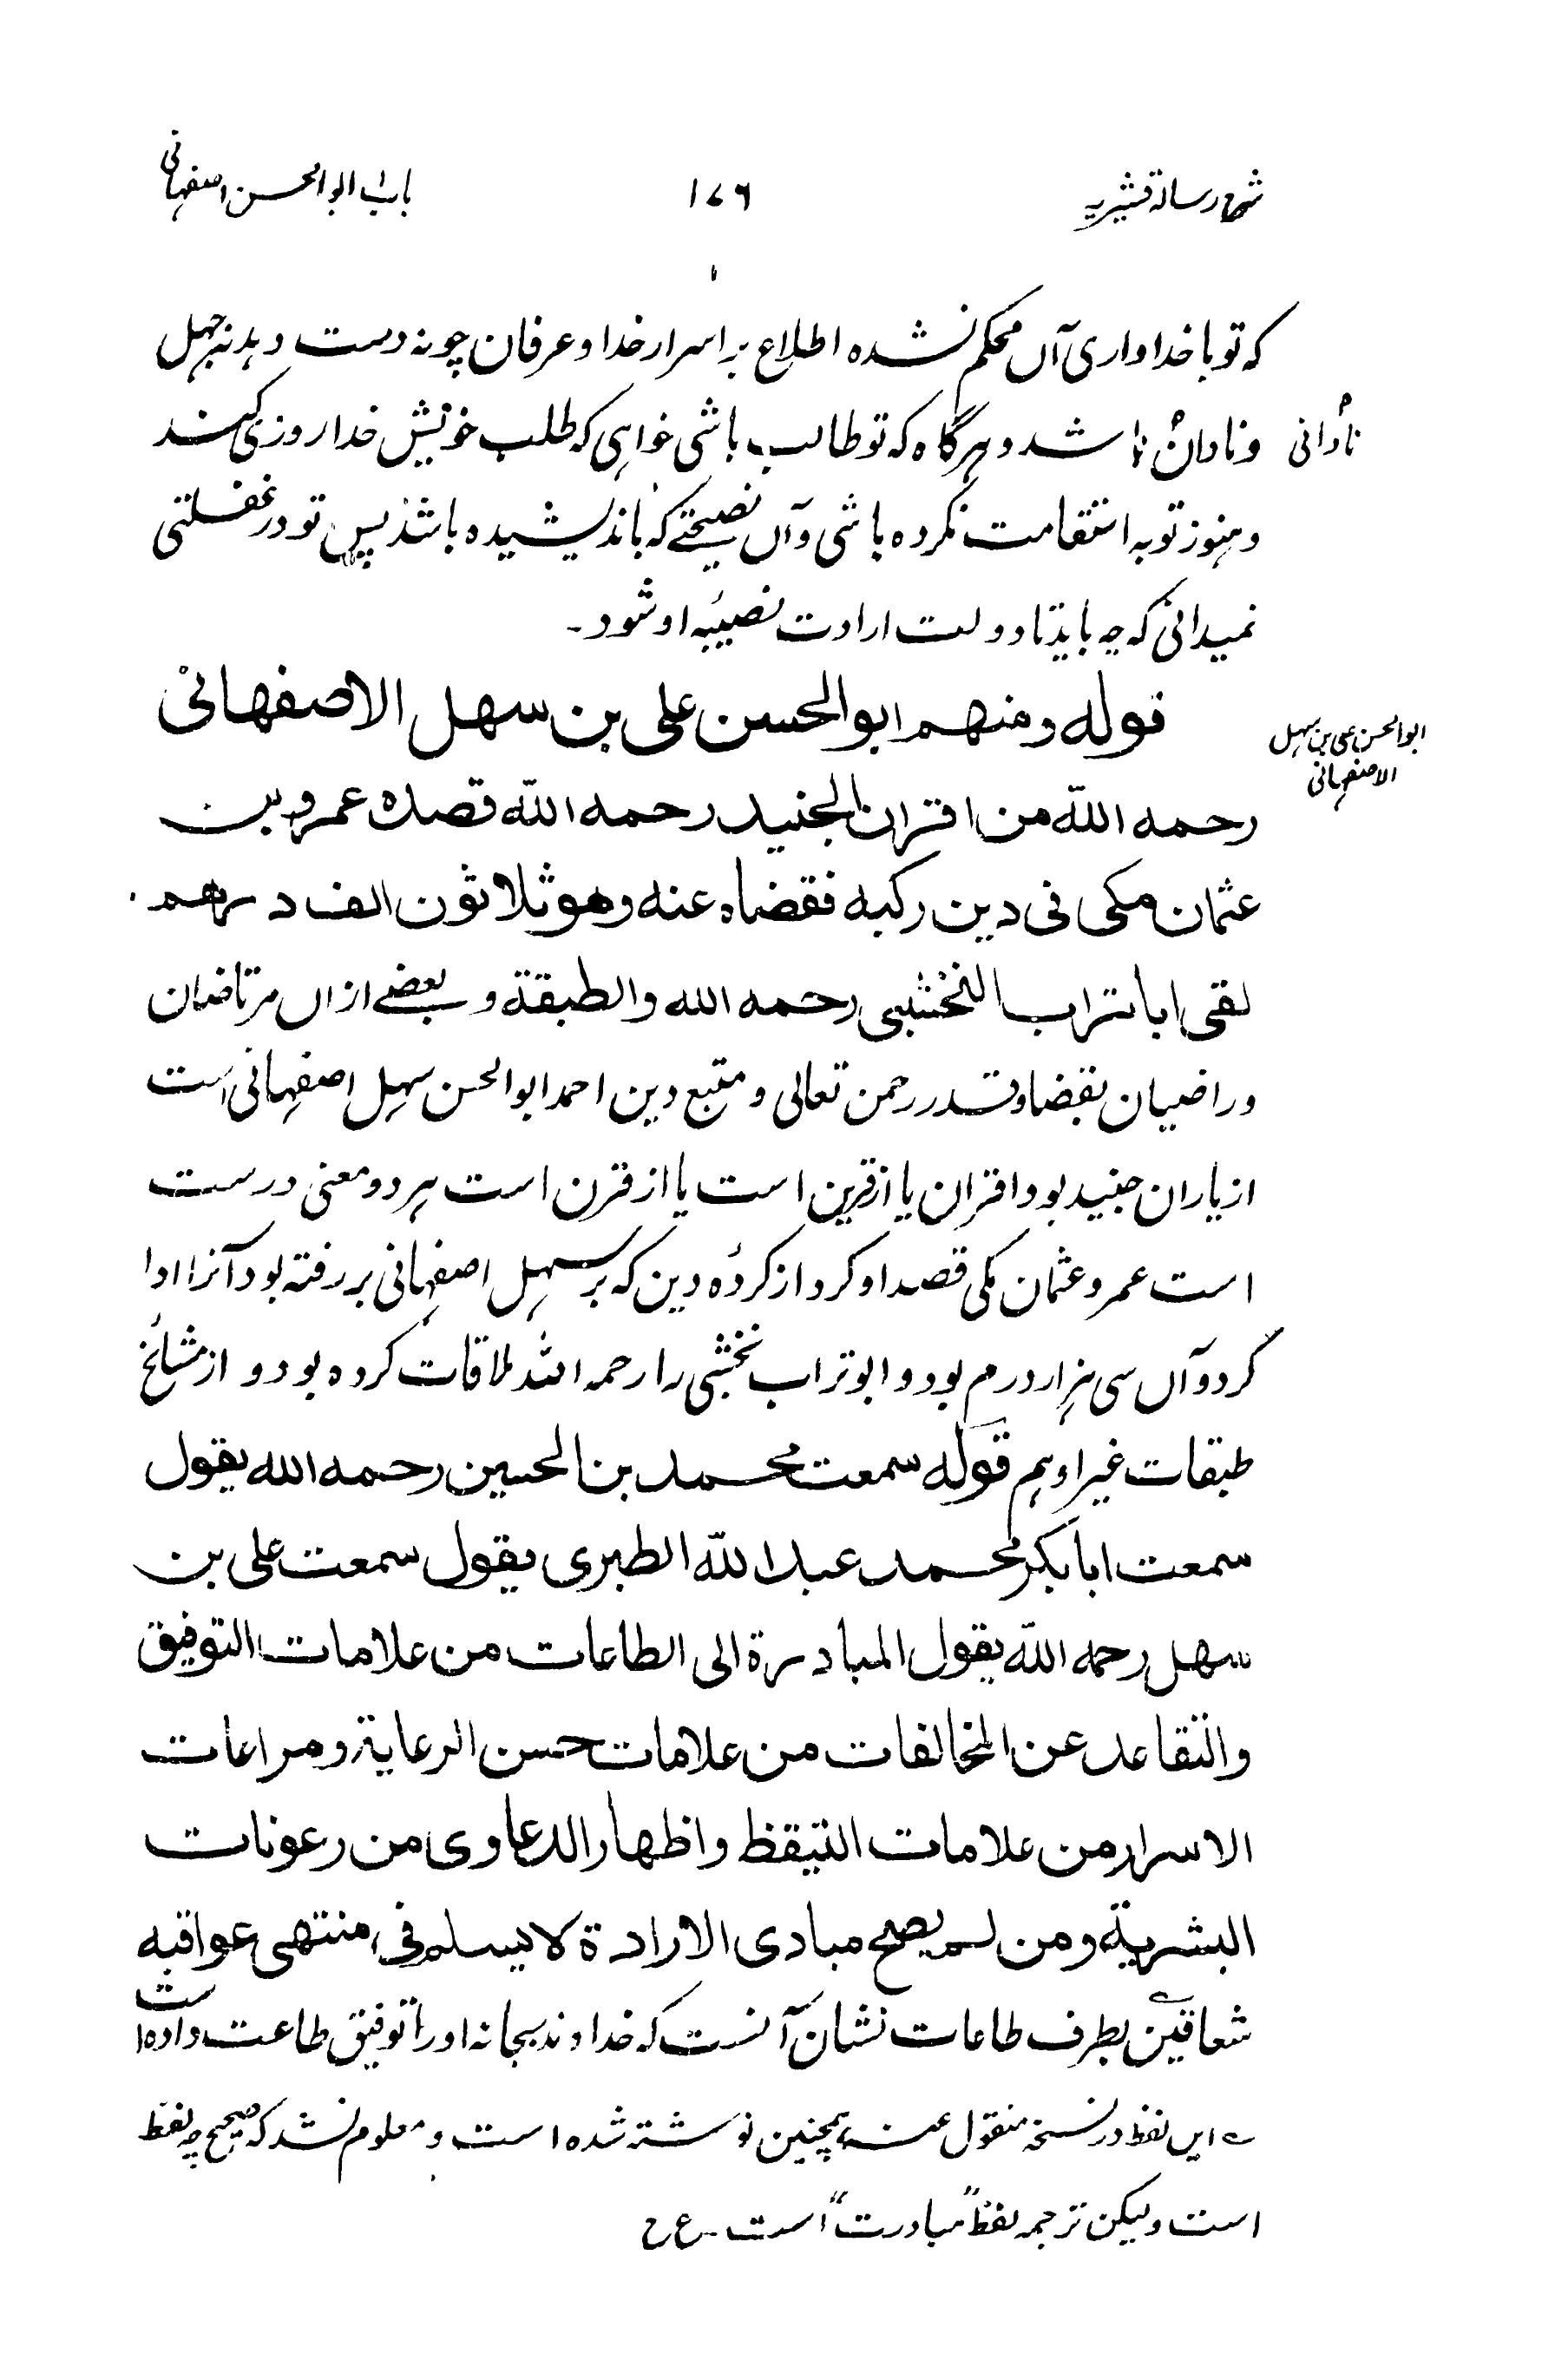 شرح رسالۀ قشیریہ
۱۷۶
باب ابوالحسن اصفہانی
که تو با خدا داری آں محکم نشده اطلاع بر اسرار خدا و عرفان چونه دست دہد نہ جہل
ونادان نا شد و ہرگاه که تو طالب باشی خواہی که طلب خویش خدا روزی کند
نادانی
و ہنوز توبہ استقامت نکرده باشی وآں نصیحتے که باندیشیده باشد پس تو در غفلتی
نمیدانی که چه باید تا دولت ارادت نصیبۂ او شود۔
قوله ومنهم ابو الحسن علی بن سهل الاصفهانی
ابوالحسن علی بن سہل
الاصفہانی
رحمه الله من اقران الجنید رحمه الله قصده عمرو بن
عثمان مکی فی دین رکبه فقضاه عنه وهو ثلاثون الف درهم
لقی ابا تراب النخشبی رحمه الله والطبقة و بعضے ازاں مرتاضان
وراضیان بقضا وقدر رحمن تعالی و متبع دین احمد ابوالحسن سہل اصفہانی است
از یاران جنید بود اقران یا از قرین است یا از قرن است ہر دو معنی درست
است عمرو عثمان مکی قصد او کرد از کردۂ دین که بر سہل اصفہانی بر رفته بود آنرا ادا
کرد وآں سی ہزار درم بود و ابو تراب نخشبی را رحمه الله ملاقات کرده بود و از مشائخ
طبقات غیر او ہم قوله سمعت محمد بن الحسین رحمه الله یقول
سمعت ابا بکر محمد عبد الله الطبری یقول سمعت علی بن
سهل رحمه الله یقول المبادرة الی الطاعات من علامات التوفیق
والتقاعد عن المخالفات من علامات حسن الرعایة ومراعات
الاسرار من علامات التیقظ واظهار الدعاوی من رعونات
البشریة ومن لم یصح مبادی الارادة لا یسلم فی منتهی عواقبه
شعاقین بطرف طاعات نشان آنست که خداوند سبحانه او را توفیق طاعت داده است
ے ایں لفظ در نسخہ منقول عنہ ہمچنین نوشتہ شدہ است و معلوم نشد که صحیح چہ لفظ
است ولیکن ترجمہ لفظ "مبادرت" است۔ ع ح